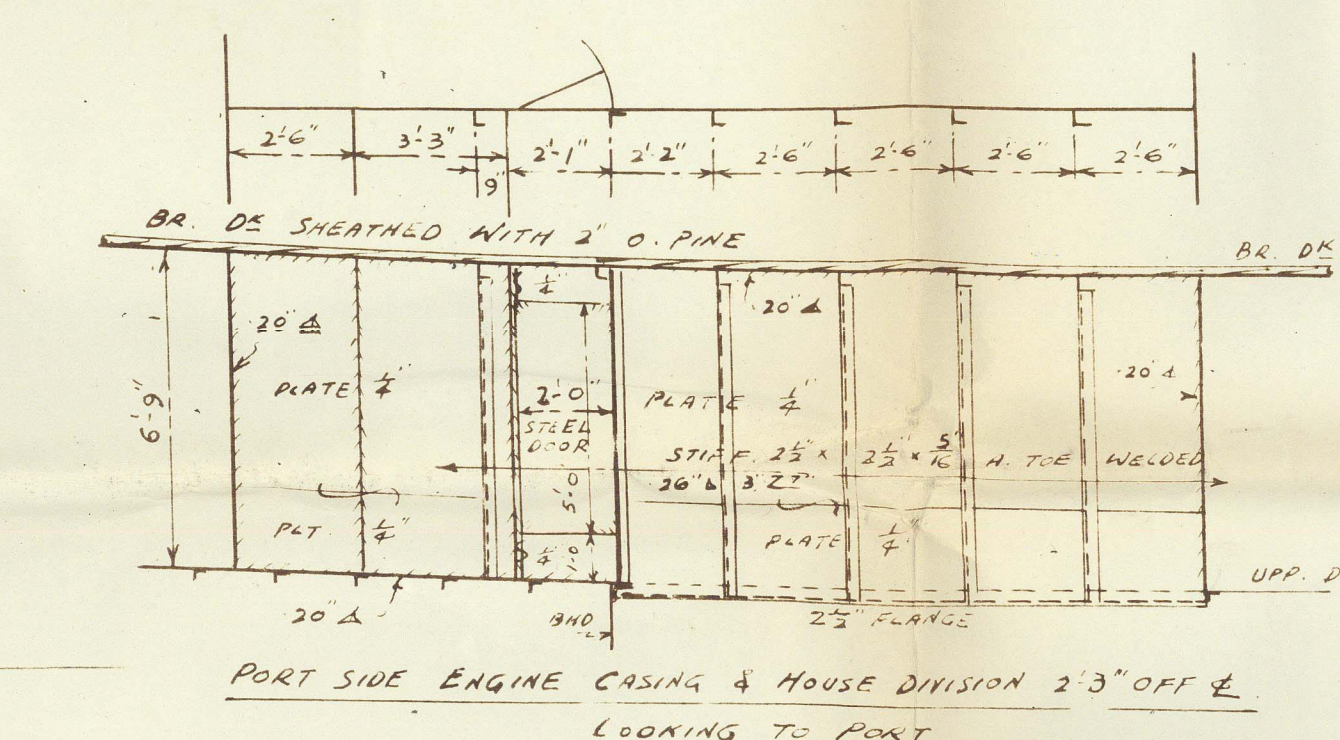 2'-6" 3'-3" 9" 2'-1" 2'-2" 2'-6" 2'-6" 2'-6" 2'-6"
BR. DK SHEATHED WITH 2" O. PINE
BR. DK
6'-9"
20"
PLATE 1/4"
PLT. 1/4"
20"
1/4"
2'-0"
STEEL
DOOR
5'-0"
1/4" 1'-0"
BHD
20"
PLATE 1/4"
20"
STIFF. 2 1/2" × 2 1/2" × 5/16" A. TOE WELDED
26" 3"
PLATE 1/4"
2 1/2" FLANGE
UPP. D
PORT SIDE ENGINE CASING & HOUSE DIVISION 2'-3" OFF ℄
LOOKING TO PORT